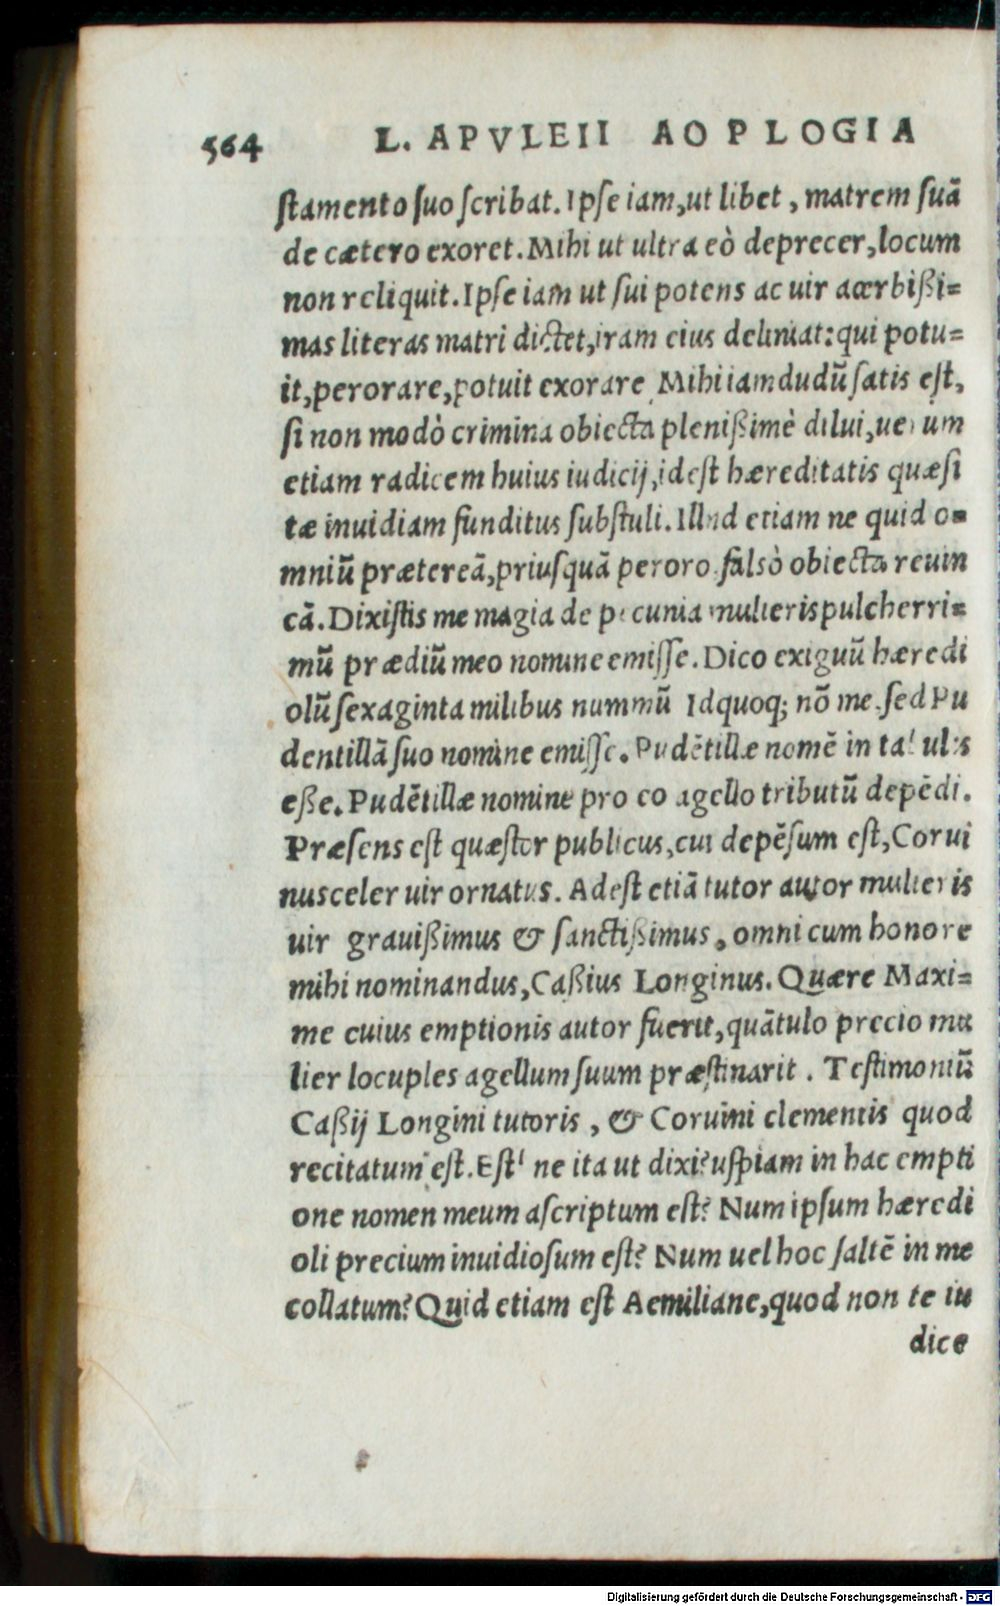 564 L. APVLEII AOPLOGIA
ſtamento ſuo ſcribat. Ipſe iam, ut libet, matrem ſuã
de cætero exoret. Mihi ut ultra eò deprecer, locum
non reliquit. Ipſe iam ut ſui potens ac uir acerbißi=
mas literas matri dictet, iram eius deliniat: qui potu=
it, perorare, potuit exorare. Mihi iamdudũ ſatis eſt,
ſi non modò crimina obiecta plenißimè dilui, uerum
etiam radicem huius iudicij, id eſt hæreditatis quæſi
tæ inuidiam funditus ſubſtuli. Illud etiam ne quid o=
mniũ prætereã, priuſquã peroro falsò obiecta reuin
cã. Dixiſtis me magia de pecunia mulieris pulcherri=
mũ prædiũ meo nomine emiſſe. Dico exiguũ hæredi
olũ ſexaginta milibus nummũ Idquoq; nõ me, ſed Pu
dentillã ſuo nomine emiſſe. Pudẽtillæ nomẽ in tabulis
eße. Pudẽtillæ nomine pro eo agello tributũ depẽdi.
Præſens eſt quæſtor publicus, cui depẽſum eſt, Corui
nusceler uir ornatus. Adeſt etiã tutor autor mulieris
uir grauißimus & ſanctißimus, omni cum honore
mihi nominandus, Caßius Longinus. Quære Maxi=
me cuius emptionis autor fuerit, quãtulo precio mu
lier locuples agellum ſuum præſtinarit. Teſtimoniũ
Caßij Longini tutoris, & Coruini clementis quod
recitatum eſt. Eſt' ne ita ut dixi? uſpiam in hac empti
one nomen meum aſcriptum eſt? Num ipſum hæredi
oli precium inuidioſum eſt? Num uel hoc ſaltẽ in me
collatum? Quid etiam eſt Aemiliane, quod non te iu
dice
Digitalisierung gefördert durch die Deutsche Forschungsgemeinschaft - DFG